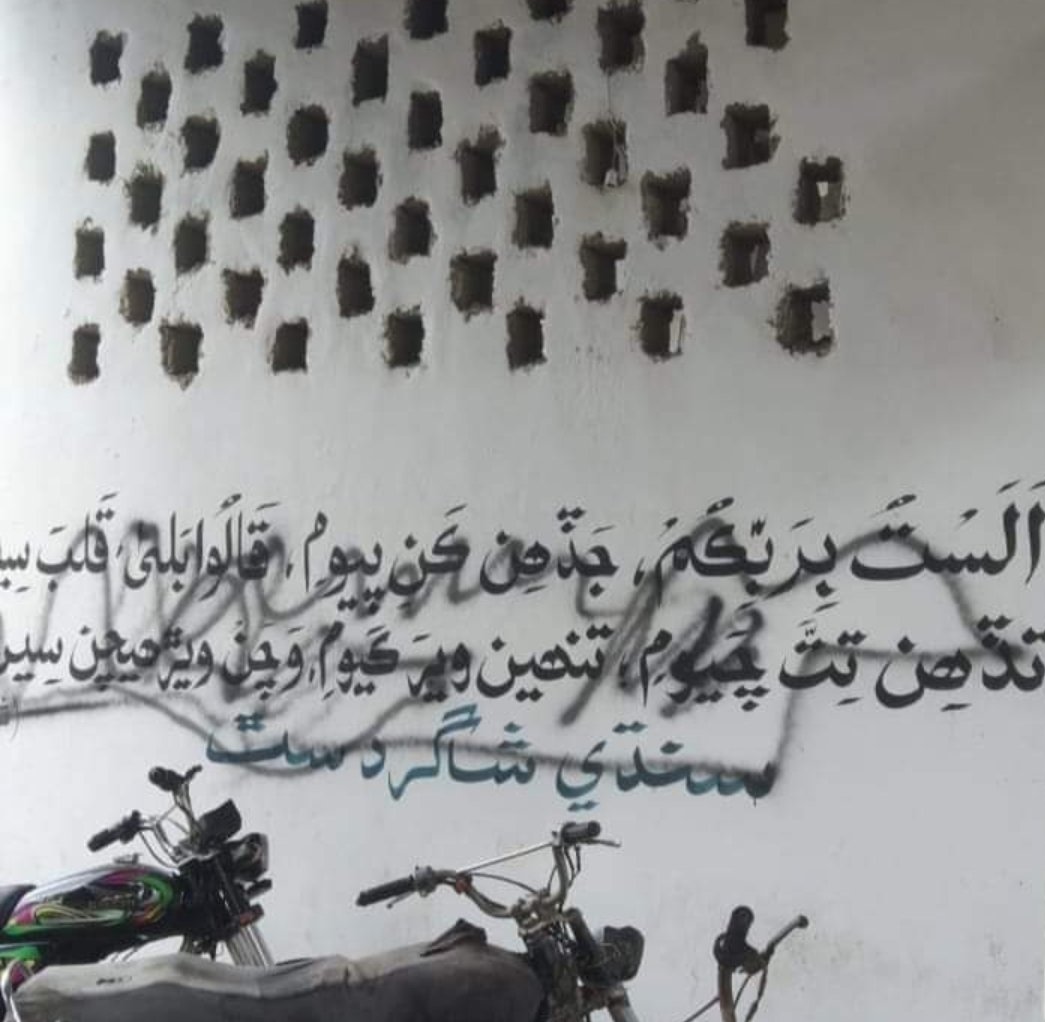 اَلَسْتُ بِرَبِّڪُمْ، جَڏهِن ڪَنِ پيومِ، قَالُوا بَلیٰ قَلبَ
تڏهِن تِتِ چَيومِ، تنهين ويرَ ڪَيومِ، وَچَنُ ويڙهيچن سِين
سنڌي شاگرد سٿ